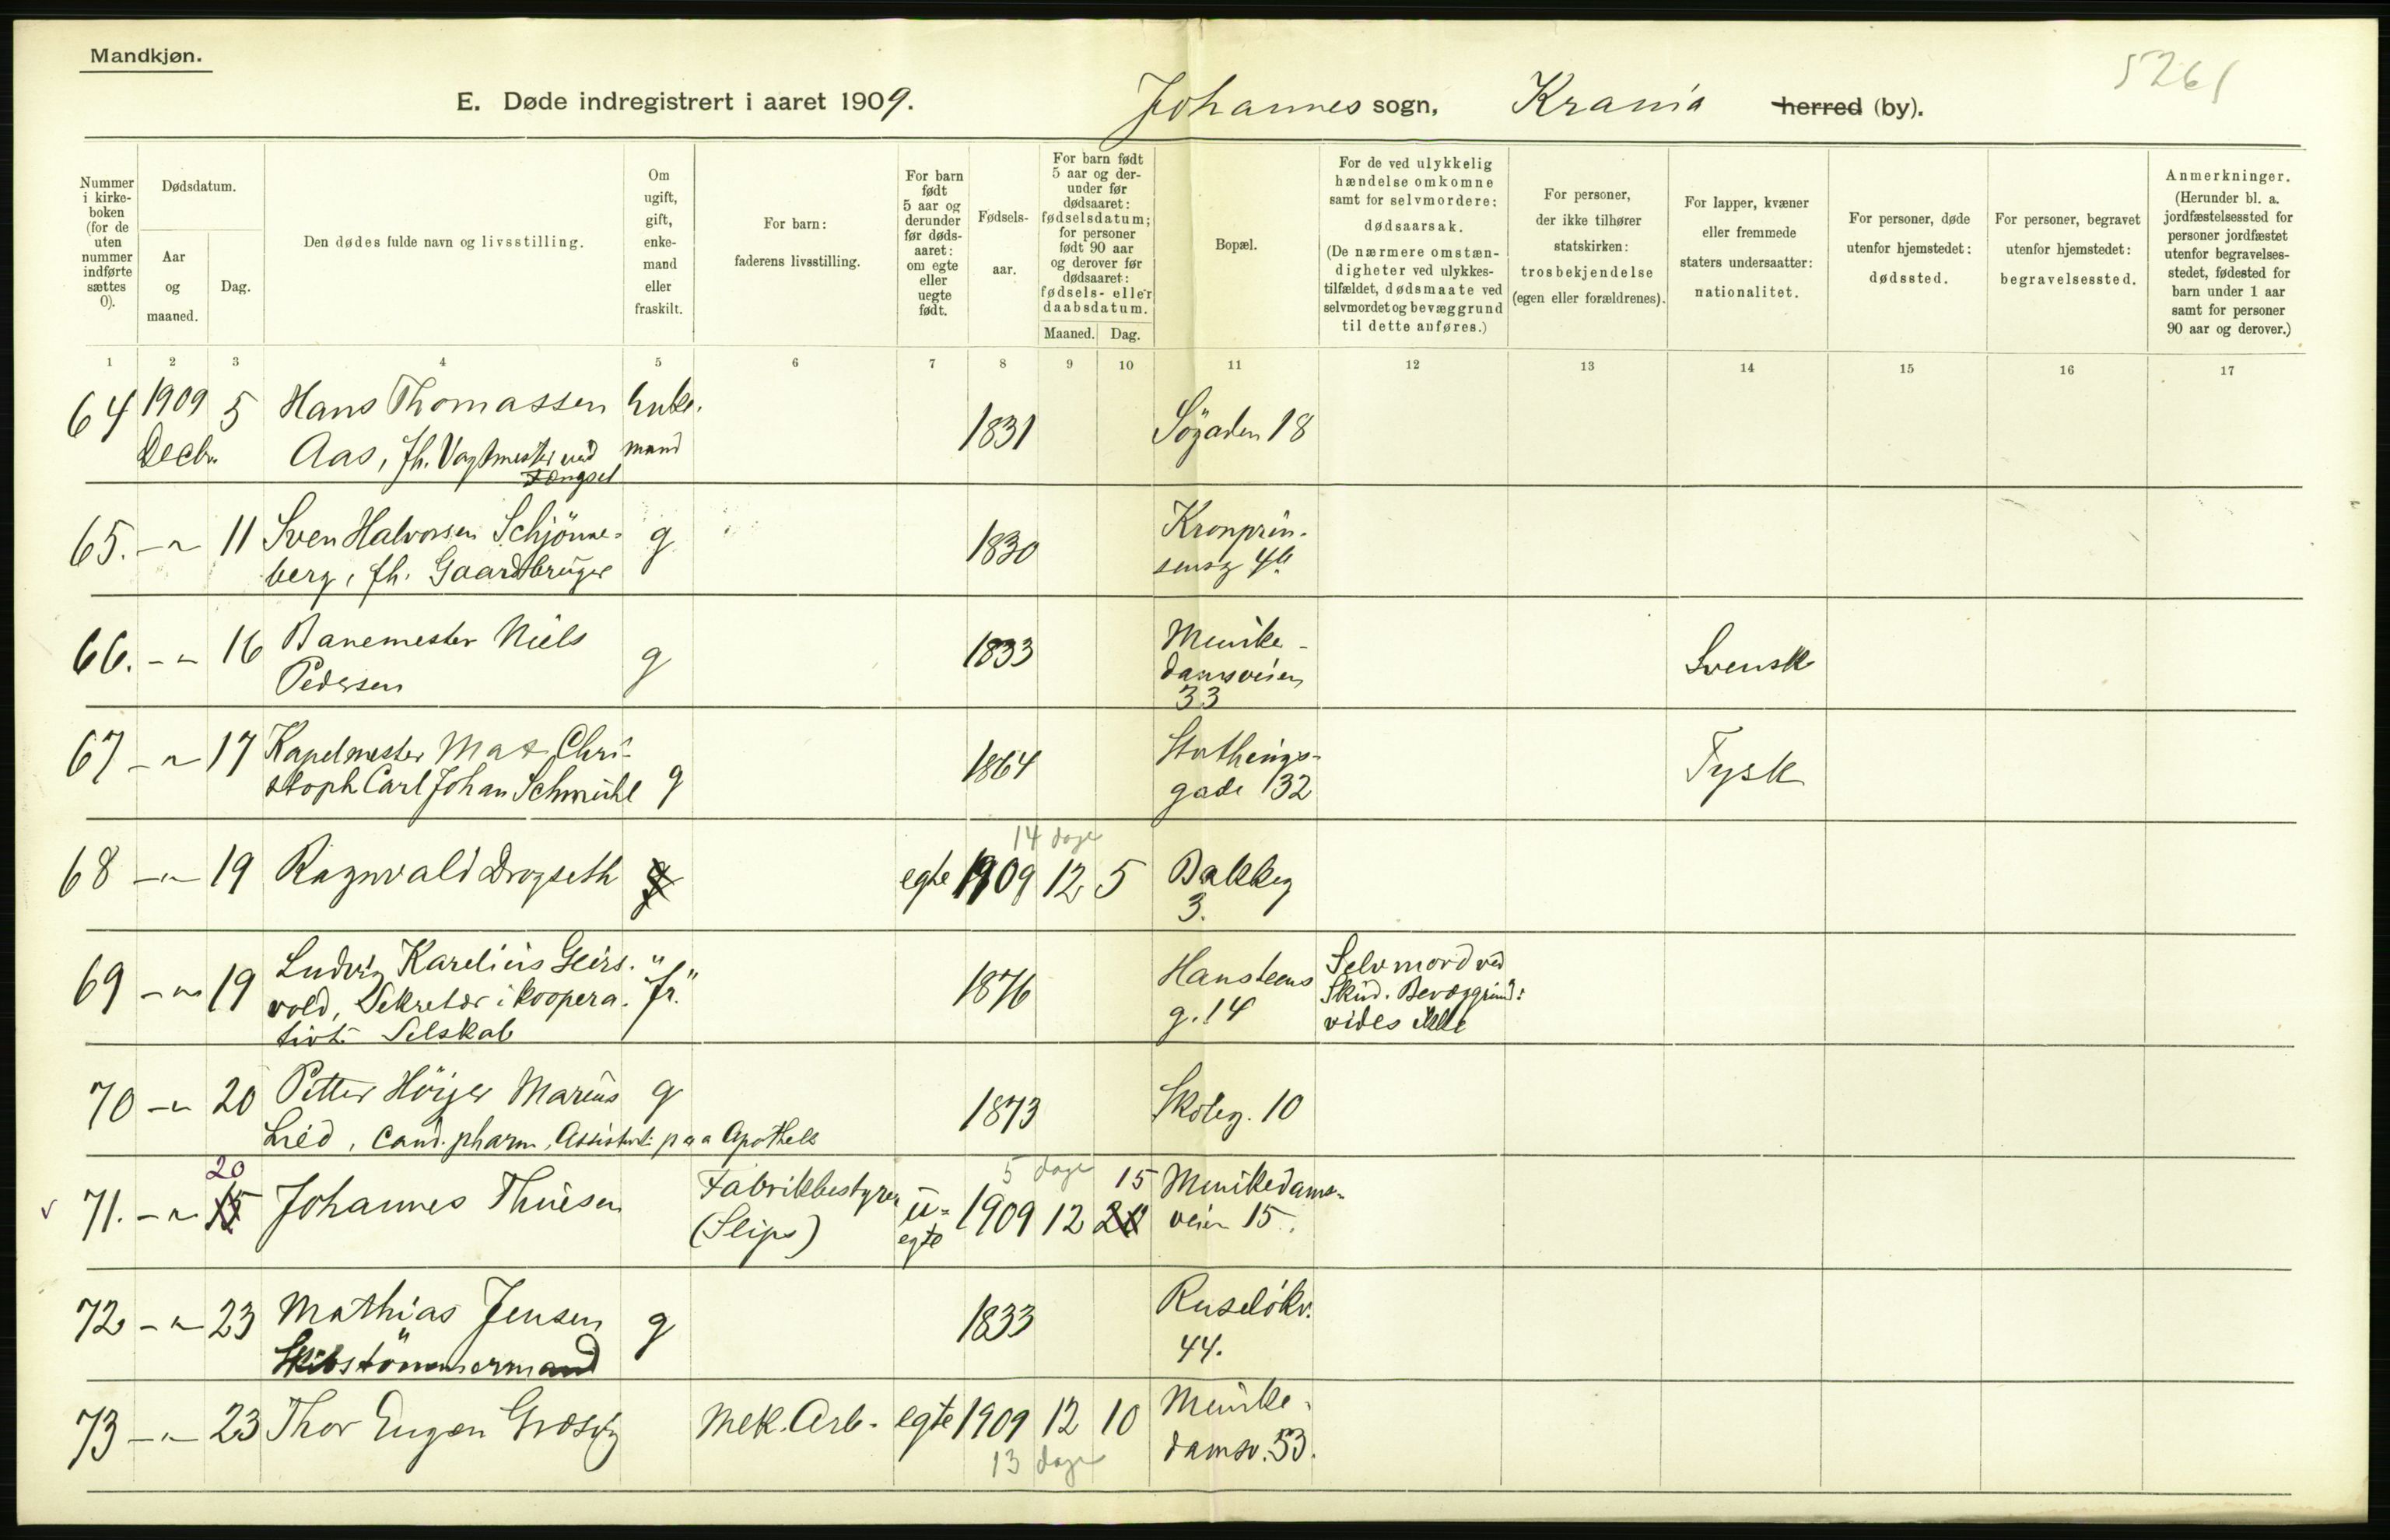 Mandkjøn.
5261
E. Døde indregistrert i aaret 1909. Johannes sogn, Krania herred (by).
Nummer i kirke-boken (for de uten nummer indførte sættes 0).
Dødsdatum.
Aar og maaned.
Dag.
Den dødes fulde navn og livsstilling.
Om ugift, gift, enke-mand eller fraskilt.
For barn: faderens livsstilling.
For barn født 5 aar og derunder før døds-aaret: om egte eller uegte født.
Fødsels-aar.
For barn født 5 aar og der-under før dødsaaret: fødselsdatum; for personer født 90 aar og derover før dødsaaret: fødsels- eller daabsdatum.
Maaned. Dag.
Bopæl.
For de ved ulykkelig hændelse omkomne samt for selvmordere: dødsaarsak. (De nærmere omstæn-digheter ved ulykkes-tilfældet, dødsmaate ved selvmordet og bevæggrund til dette anføres.)
For personer, der ikke tilhører statskirken: trosbekjendelse (egen eller forældrenes).
For lapper, kvæner eller fremmede staters undersaatter: nationalitet.
For personer, døde utenfor hjemstedet: dødssted.
For personer, begravet utenfor hjemstedet: begravelsessted.
Anmerkninger. (Herunder bl. a. jordfæstelsessted for personer jordfæstet utenfor begravelses-stedet, fødested for barn under 1 aar samt for personer 90 aar og derover.)
1 2 3 4 5 6 7 8 9 10 11 12 13 14 15 16 17
64 1909 5 Hans Thomassen Enke-
Decbr. Aas, fh. Vagtmester ved mand 1831 Søgaden 18
Fængsel
65. -"- 11 Sven Halvorsen Schjönne- g 1830 Kronprin-
berg, fh. Gaardbruger sensg 4b
66. -"- 16 Banemester Niels g 1833 Munke- Svensk
Pedersen damsveien
33
67 -"- 17 Kapelmester Max Chri- 1864 Tysk
stoph Carl Johan g gade 132
14 dage
68 -"- 19 Ragnvald Drogseth g egte 1909 12 5 Bakkeg
3.
69 -"- 19 Ludvig Karelius Geirs- "fr." 1876 Hansteens Selvmord ved
vold, Sekretær i koopera- g. 14 Skud. Bevæggrund:
tivt Selskab vides ikke
70 -"- 20 Petter Höijer Marius g 1873 Skoleg. 10
Lied, cand. pharm, Assistent paa Apothek
20 5 dage 15
71. -"- 15 Johannes Thuesen Fabrikbestyrer u- 1909 12 Munkedams-
(Slips) egte veien 15.
72 -"- 23 Mathias Jensen g 1833 Ruselökv.
Skibstömmermand 44.
73 -"- 23 Thor Eugen Mek. Arb. egte 1909 12 10 Munke-
13 dage damsv. 53.